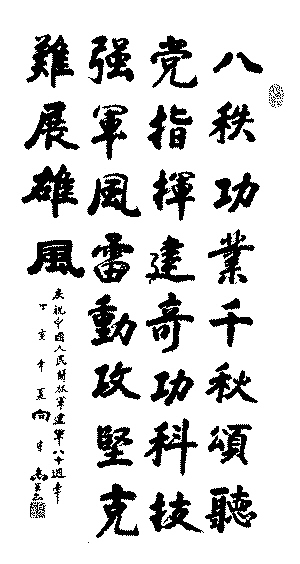 八秩功業千秋頌聽
党指揮建奇功科技
强軍風雷動攻堅克
難展雄風
庆祝中國人民解放軍建軍八十週年
丁亥年夏向